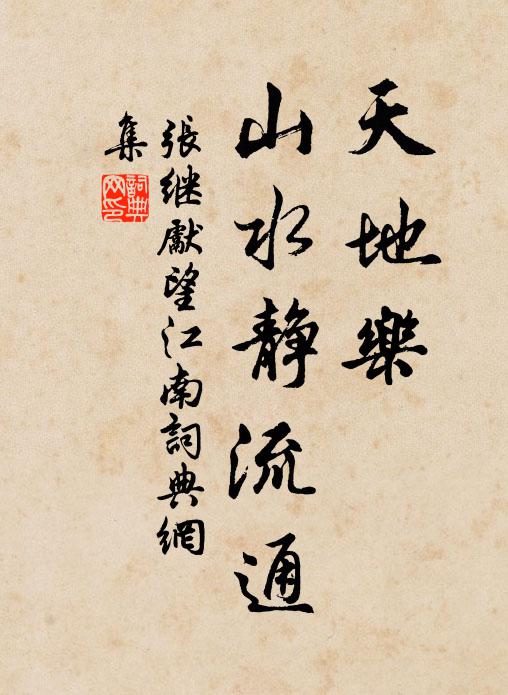 天地樂
山水静流通
張继獻望江南詞典網
集
詞典
网印